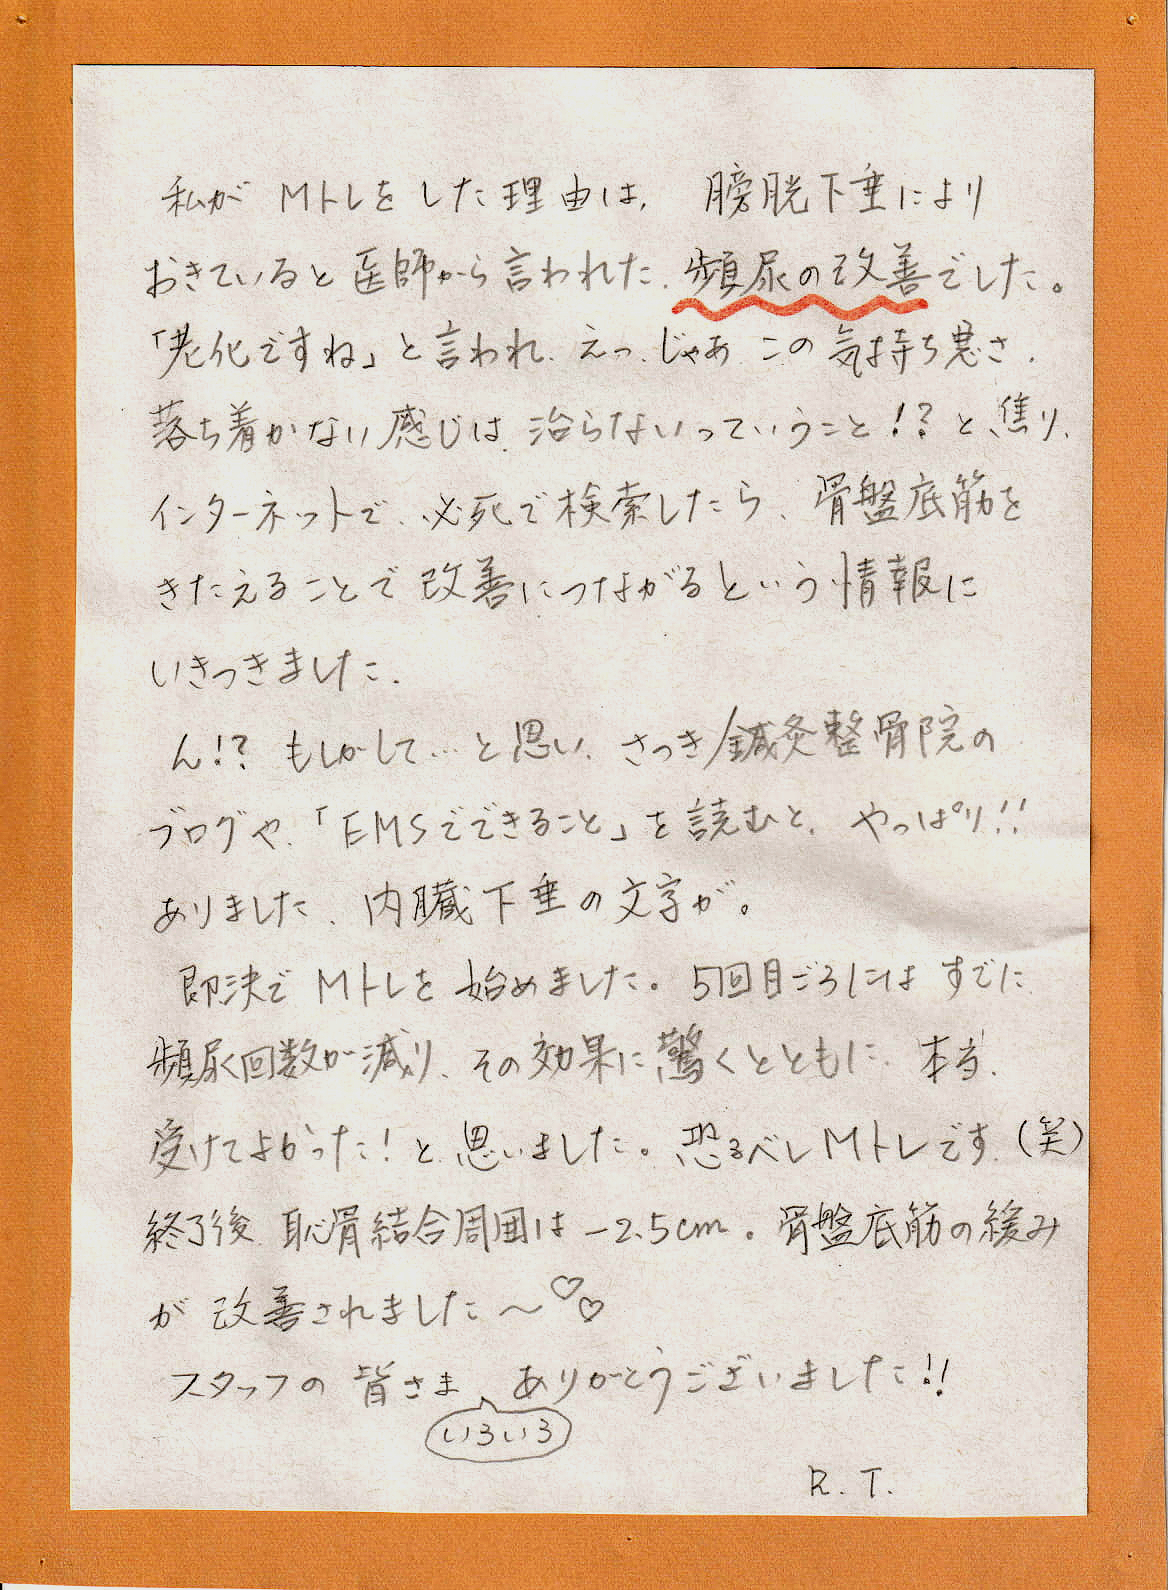 私が Mトレをした理由は、 膀胱下垂により
おきていると医師から言われた、頻尿の改善でした。
「老化ですね」と言われ、えっ、じゃあ この気持ち悪さ、
落ち着かない感じは、治らないっていうこと!?と焦り、
インターネットで、必死で検索したら、骨盤底筋を
きたえることで改善につながるという情報に
いきつきました。
ん!? もしかして…と思い、さつき鍼灸整骨院の
ブログや、「EMSでできること」を読むと、やっぱり!!
ありました、内臓下垂の文字が。
即決でMトレを始めました。5回目ごろにはすでに
頻尿回数が減り、その効果に驚くとともに、本当、
受けてよかった!と、思いました。恐るべしMトレです、(笑)
終了後、恥骨結合周囲は-2.5cm。骨盤底筋の緩み
が改善されました〜♡♡
スタッフの皆さま、ありがとうございました!!
いろいろ
R.T.